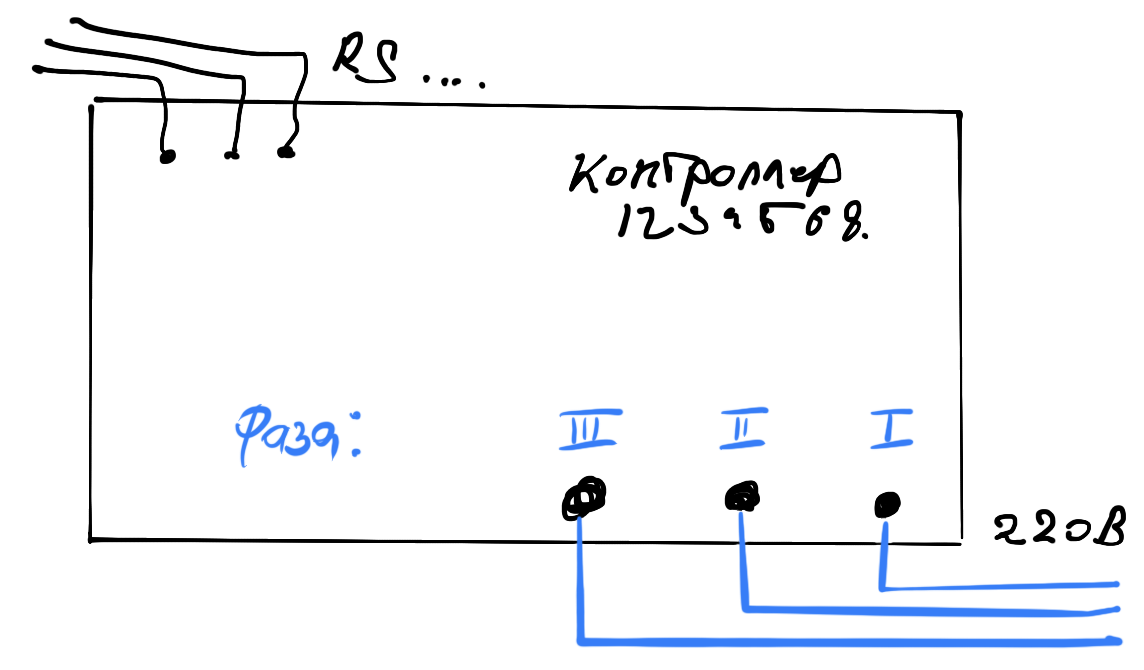 RS ....
Контроллер
12345678.
Фаза: III II I
220В